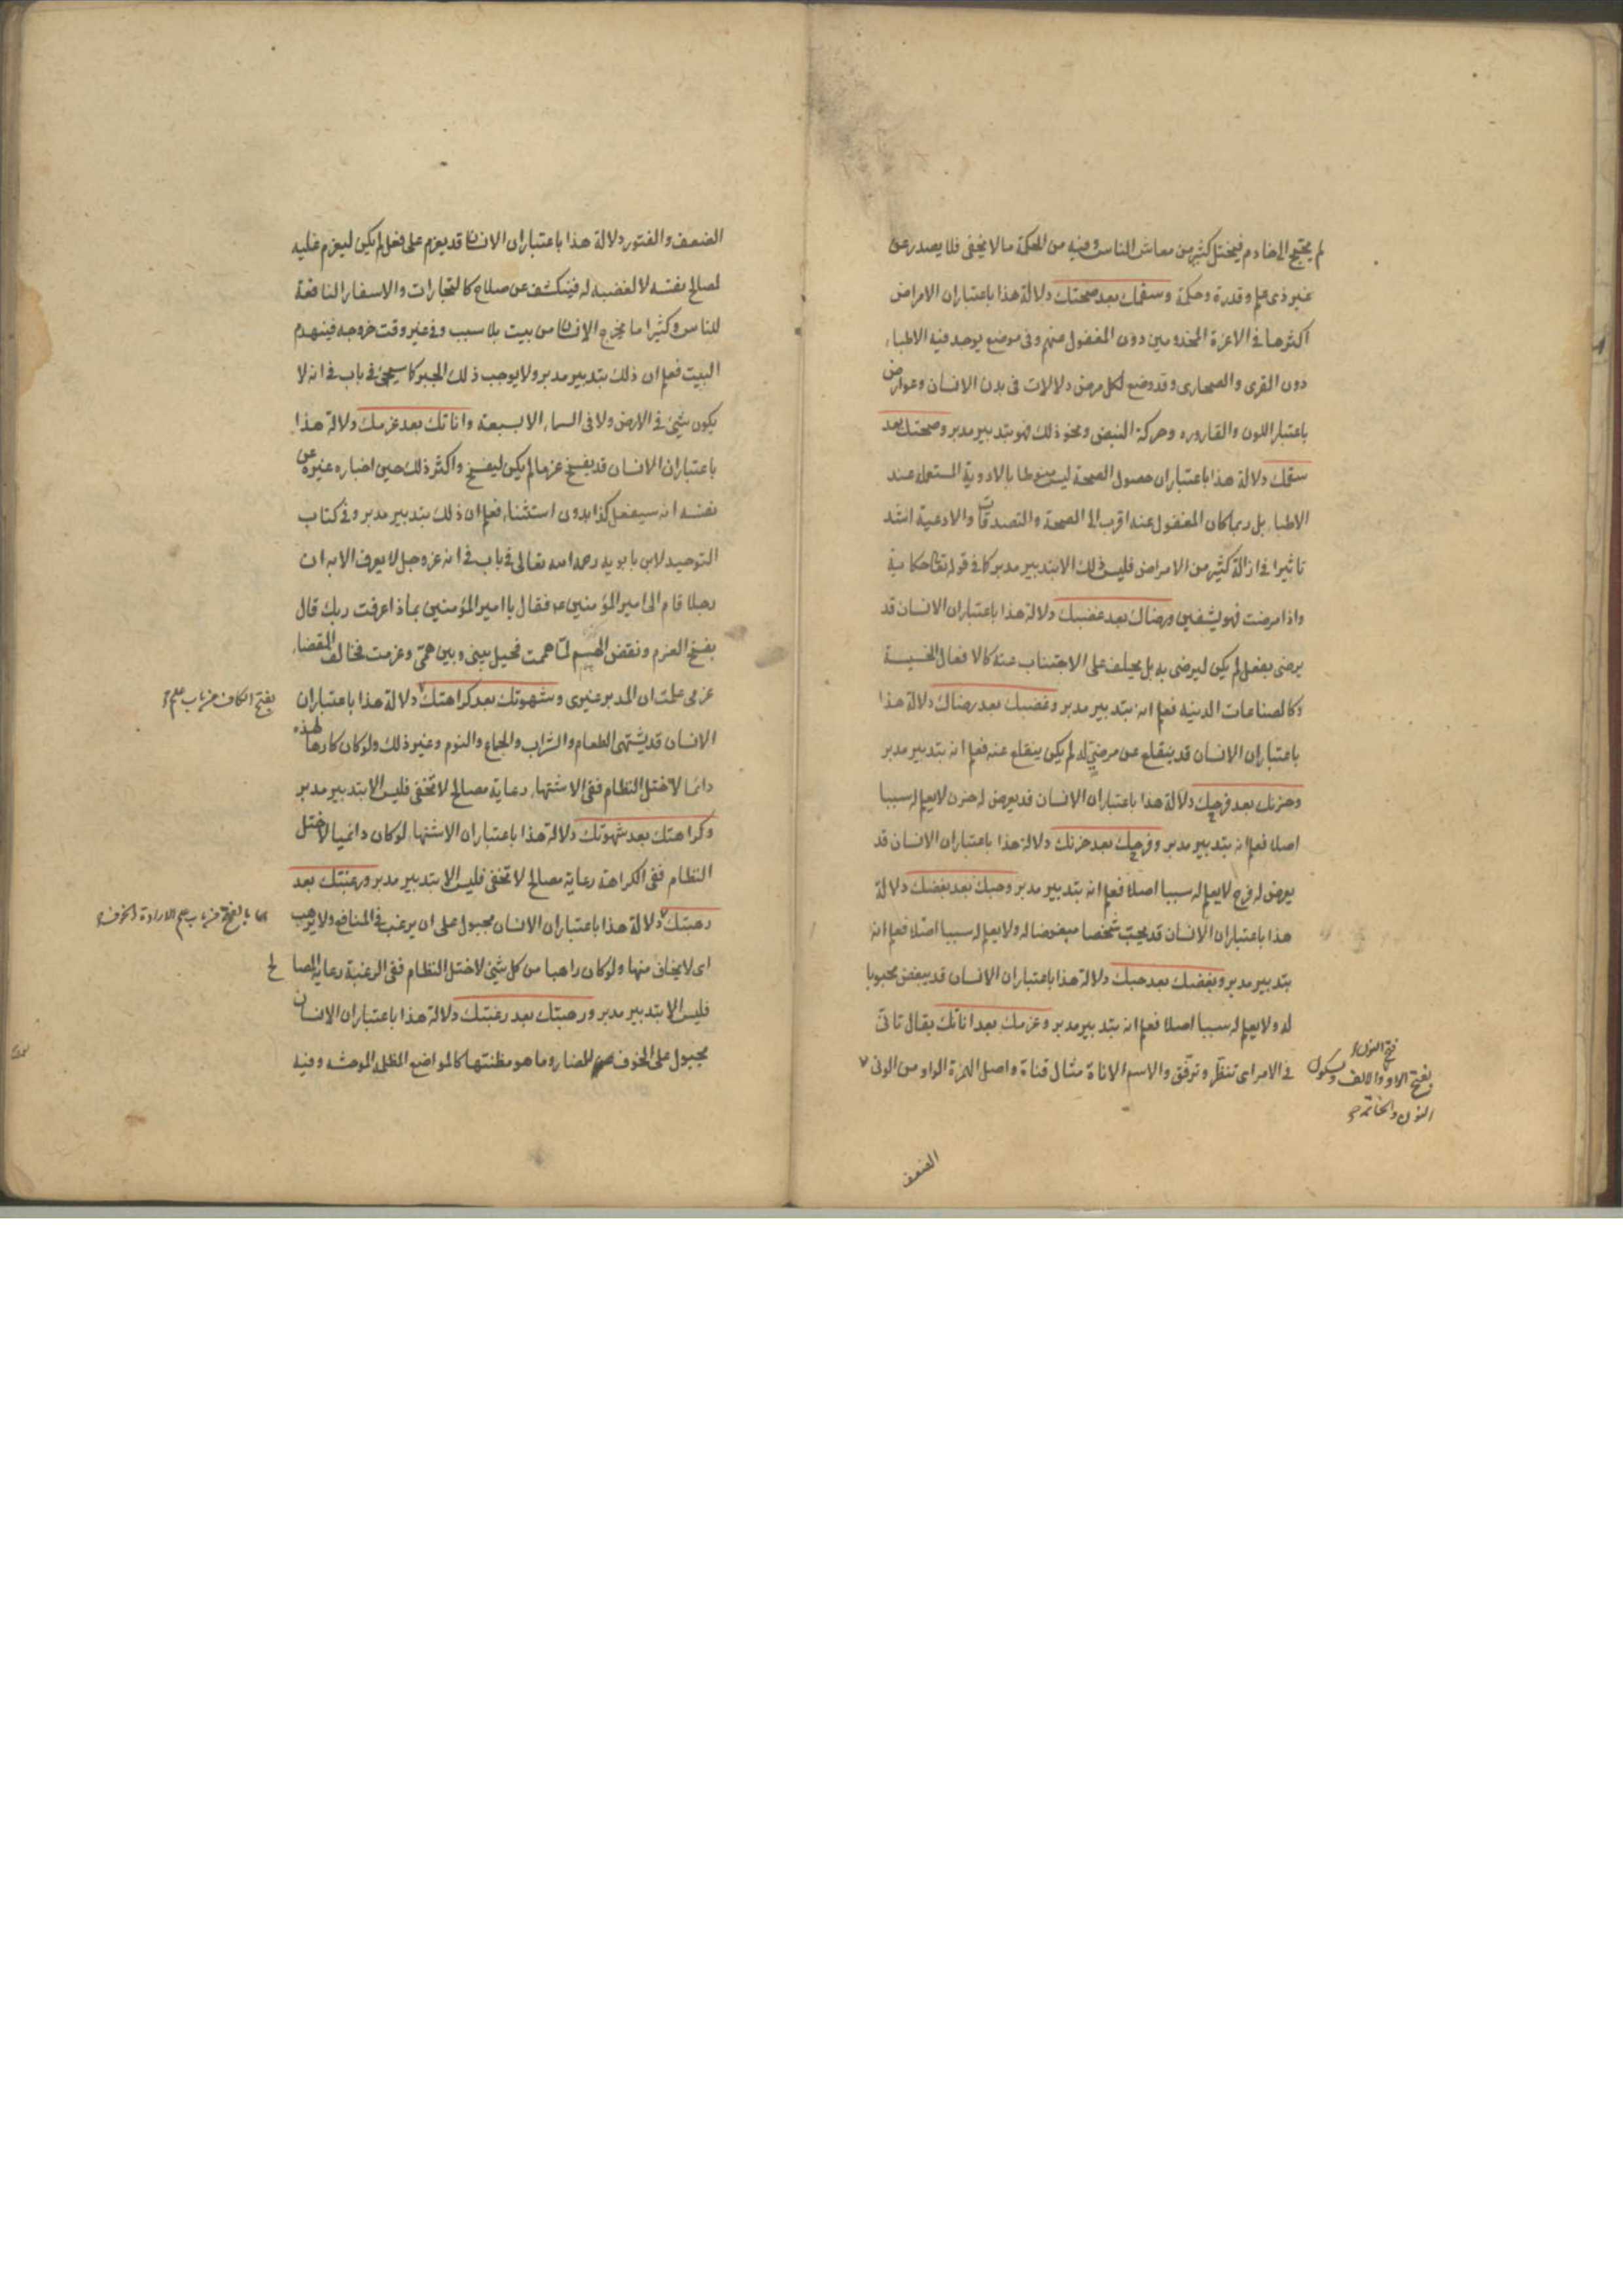 لم يحتج الى خادم فيختل كثير من معاش الناس وفيه من الحكمة ما لا يخفى فلا يصدر عن
غير ذى علم وقدرة وحكمة وسقمك بعد صحتك دلالة هذا باعتبار ان الامراض
اكثرها فى الاعزة المخدومين دون المغفول عنهم وفى موضع يوجد فيه الاطباء
دون القرى والصحارى وقد وضع لكل مرض دلالات فى بدن الانسان وعوارض
باعتبار اللون والقاروره وحركة النبض ونحو ذلك فهو بتدبير مدبر وصحتك بعد
سقمك دلالة هذا باعتبار ان حصول الصحة ليس منوطا بالادوية المستعملة عند
الاطباء بل ربما كان المغفول عنه اقرب الى الصحة والتصدقات والادعية اشد
تاثيرا فى ازالة كثير من الامراض فليس ذلك الا بتدبير مدبر كما فى قوله تعالى حكاية
واذا مرضت فهو يشفين ورضاك بعد غضبك دلالة هذا باعتبار ان الانسان قد
يرضى بفعل لم يكن ليرضى به بل يحلف على الاجتناب عنه كالافعال الخسيسة
وكالصناعات الدنيه فعلم انه بتدبير مدبر وغضبك بعد رضاك دلالة هذا
باعتبار ان الانسان قد ينقلع عن مرضىّ له لم يكن ينقلع عنه فعلم انه بتدبير مدبر
وحزنك بعد فرحك دلالة هذا باعتبار ان الانسان قد يعرض له حزن لا يعلم له سببا
اصلا فعلم انه بتدبير مدبر وفرحك بعد حزنك دلالة هذا باعتبار ان الانسان قد
يعرض له فرح لا يعلم له سببا اصلا فعلم انه بتدبير مدبر وحبك بعد بغضك دلالة
هذا باعتبار ان الانسان قد يحبّ شخصا مبغوضا له ولا يعلم له سببا اصلا فعلم انه
بتدبير مدبر وبغضك بعد حبك دلالة هذا باعتبار ان الانسان قد يبغض محبوبا
له ولا يعلم له سببا اصلا فعلم انه بتدبير مدبر وعزمك بعد اناتك يقال تانى
فى الامر اى تنظّر وترفّق والاسم الاناة مثال قناة واصل الهمزة الواو من الونى
بفتح الواو والالف وسكون
النون
الضعف
الضعف والفتور دلالة هذا باعتبار ان الانسان قد يعزم على فعل لم يكن ليعزم عليه
لصالح نفسه لا لغضبه له فينكشف عن صلاح كالتجارات والاسفار النافعة
للناس وكثيرا ما يخرج الانسان من بيت بلا سبب وفى غير وقت خروجه فينهدم
البيت فعلم ان ذلك بتدبير مدبر ولا يوجب ذلك الجبر كما سيجىء فى باب فى انه لا
يكون شىء فى الارض ولا فى السماء الا بسبعة واناتك بعد عزمك دلالة هذا
باعتبار ان الانسان قد يفسخ عزما لم يكن ليفسخ واكثر ذلك حين اخباره غيره عن
نفسه انه سيفعل كذا بدون استثناء فعلم ان ذلك بتدبير مدبر وفى كتاب
التوحيد لابن بابويه رحمه الله تعالى فى باب فى انه عز وجل لا يعرف الا به ان
رجلا قام الى امير المؤمنين ع فقال يا امير المؤمنين بماذا عرفت ربك قال
بفسخ العزم ونقض الهمم لمّا هممت فحيل بينى وبين همّى وعزمت فخالف القضاء
عزمى علمت ان المدبر غيرى وشهوتك بعد كراهتك دلالة هذا باعتبار ان
بفتح الكاف من باب علم
الانسان قد يشتهى الطعام والشراب والجماع والنوم وغير ذلك ولو كان كارها لهذه
دائما لاختل النظام ففى الاشتهاء رعاية مصالح لا تخفى فليس الا بتدبير مدبر
وكراهتك بعد شهوتك دلالة هذا باعتبار ان الاشتهاء لو كان دائميا لاختل
النظام ففى الكراهة رعاية مصالح لا تخفى فليس الا بتدبير مدبر ورغبتك بعد
رهبتك دلالة هذا باعتبار ان الانسان مجبول على ان يرغب فى المنافع ولا يرهب
اى لا يخاف منها ولو كان راهبا من كل شىء لاختل النظام ففى الرغبة رعاية المصالح
فليس الا بتدبير مدبر ورهبتك بعد رغبتك دلالة هذا باعتبار ان الانسان
مجبول على الخوف من المضار وما هو مظنتها كالمواضع المظلمة الموحشه وفيه